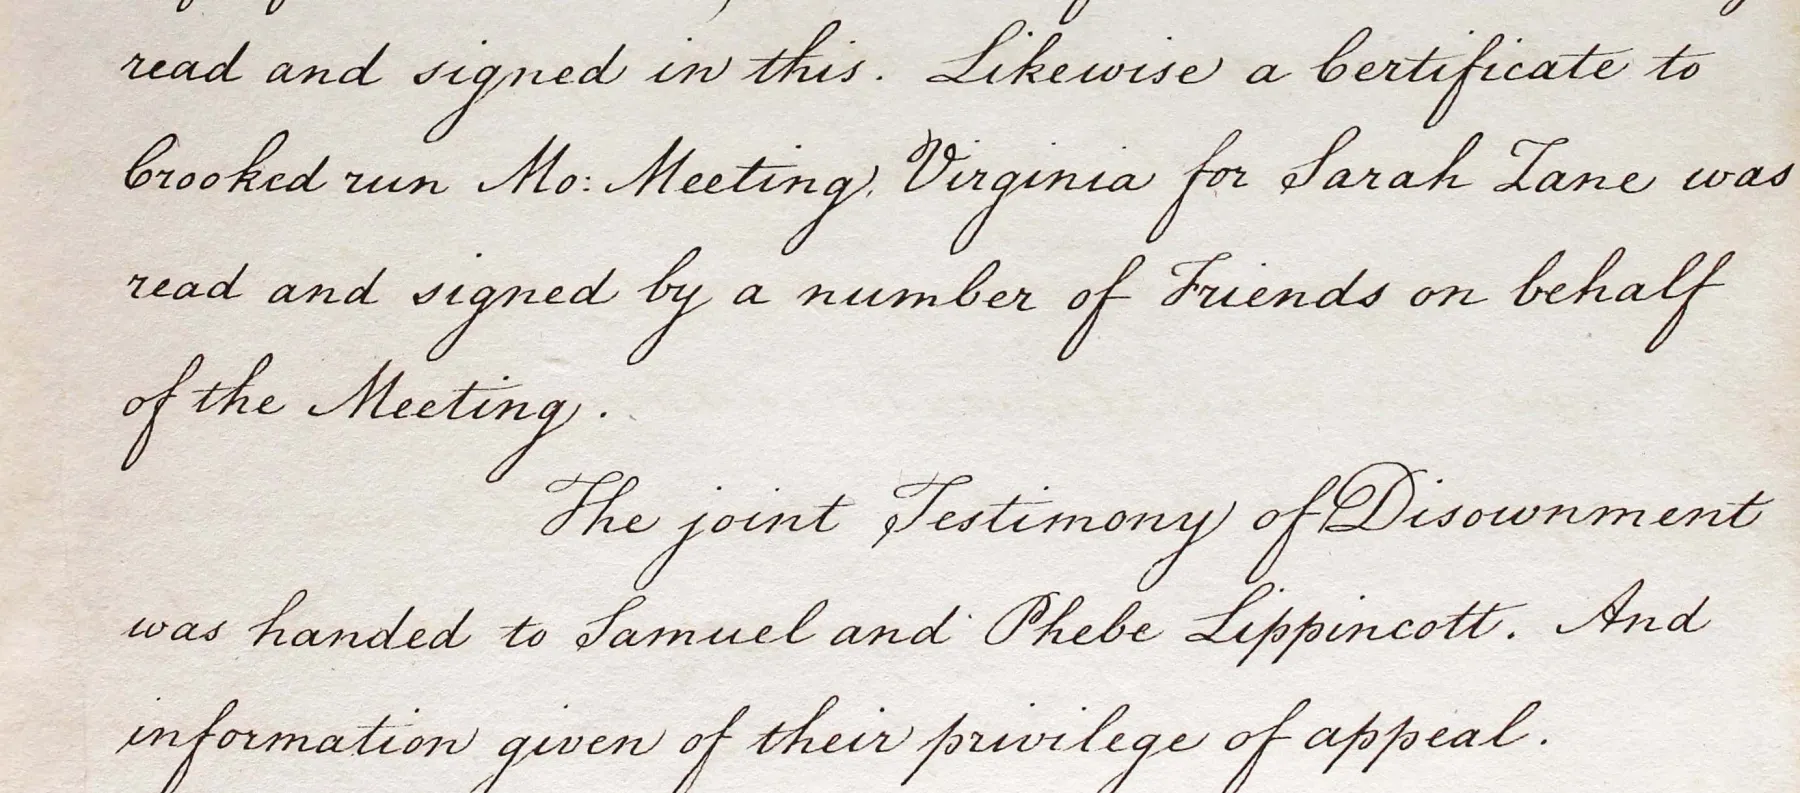 read and signed in this. Likewise a Certificate to
Crooked run Mo: Meeting, Virginia for Sarah Zane was
read and signed by a number of Friends on behalf
of the Meeting.
The joint Testimony of Disownment
was handed to Samuel and Phebe Lippincott. And
information given of their privilege of appeal.